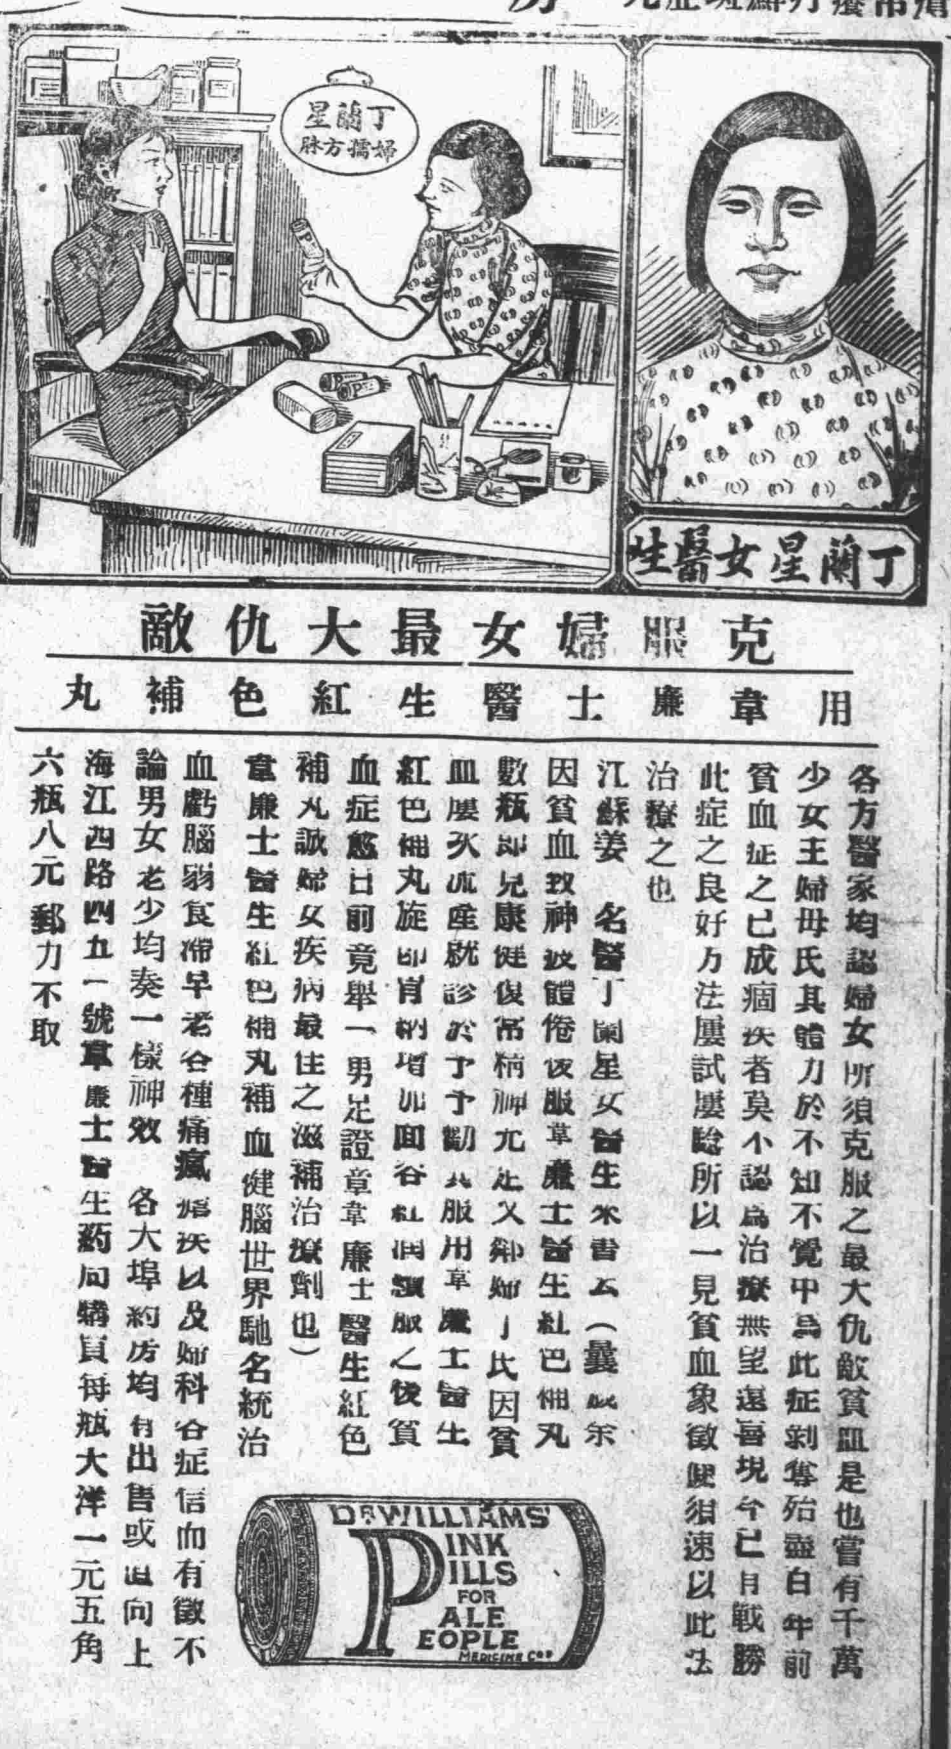 丁蘭星
婦孺方脉
丁蘭星女醫生
克服婦女最大仇敵
用韋廉士醫生紅色補丸
各方醫家均認婦女所須克服之最大仇敵貧血是也嘗有千萬
少女主婦母氏其體力於不知不覺中爲此症剝奪殆盡百年前
貧血症之已成痼疾者莫不認爲治療無望還喜現今已有戰勝
此症之良好方法屢試屢驗所以一見貧血象徵便須速以此法
治療之也
江蘇姜 名醫丁蘭星女醫生來書云(曩 余
因貧血致神疲體倦後服韋廉士醫生紅色補丸
數瓶即見康健復常精神充足又鄰婦丁氏因貧
血屢次流產就診於予予勸其服用韋廉士醫生
紅色補丸旋即胃納增加面容紅潤 服之後貧
血症愈日前竟舉一男足證韋韋廉士醫生紅色
補丸誠婦女疾病最佳之滋補治療劑也)
韋廉士醫生紅色補丸補血健腦世界馳名統治
血虧腦弱食滯早老各種痛瘋 疾以及婦科各症信而有徵不
論男女老少均奏一樣神效 各大埠約房均有出售或直向上
海江西路四五一號韋廉士醫生药局購買每瓶大洋一元五角
六瓶八元郵力不取
DR WILLIAMS'
PINK
PILLS
FOR
PALE
PEOPLE
MEDICINE CO